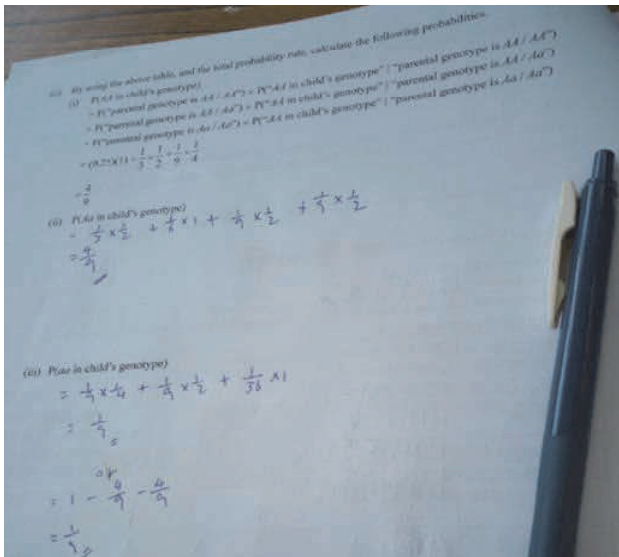 (c) By using the above table, and the total probability rule, calculate the following probabilities.
(i) P(AA in child's genotype)
= P("parental genotype is AA / AA") × P("AA in child's genotype" | "parental genotype is AA / AA")
+ P("parental genotype is AA / Aa") × P("AA in child's genotype" | "parental genotype is AA / Aa")
+ P("parental genotype is Aa / Aa") × P("AA in child's genotype" | "parental genotype is Aa / Aa")
= (0.25)(1) + 1/3 × 1/2 + 1/9 × 1/4
= 4/9
(ii) P(Aa in child's genotype)
= 1/3 × 1/2 + 1/6 × 1 + 1/9 × 1/2 + 1/9 × 1/2
= 4/9
(iii) P(aa in child's genotype)
= 1/9 × 1/4 + 1/9 × 1/2 + 1/36 × 1
= 1/9
or
= 1 - 4/9 - 4/9
= 1/9